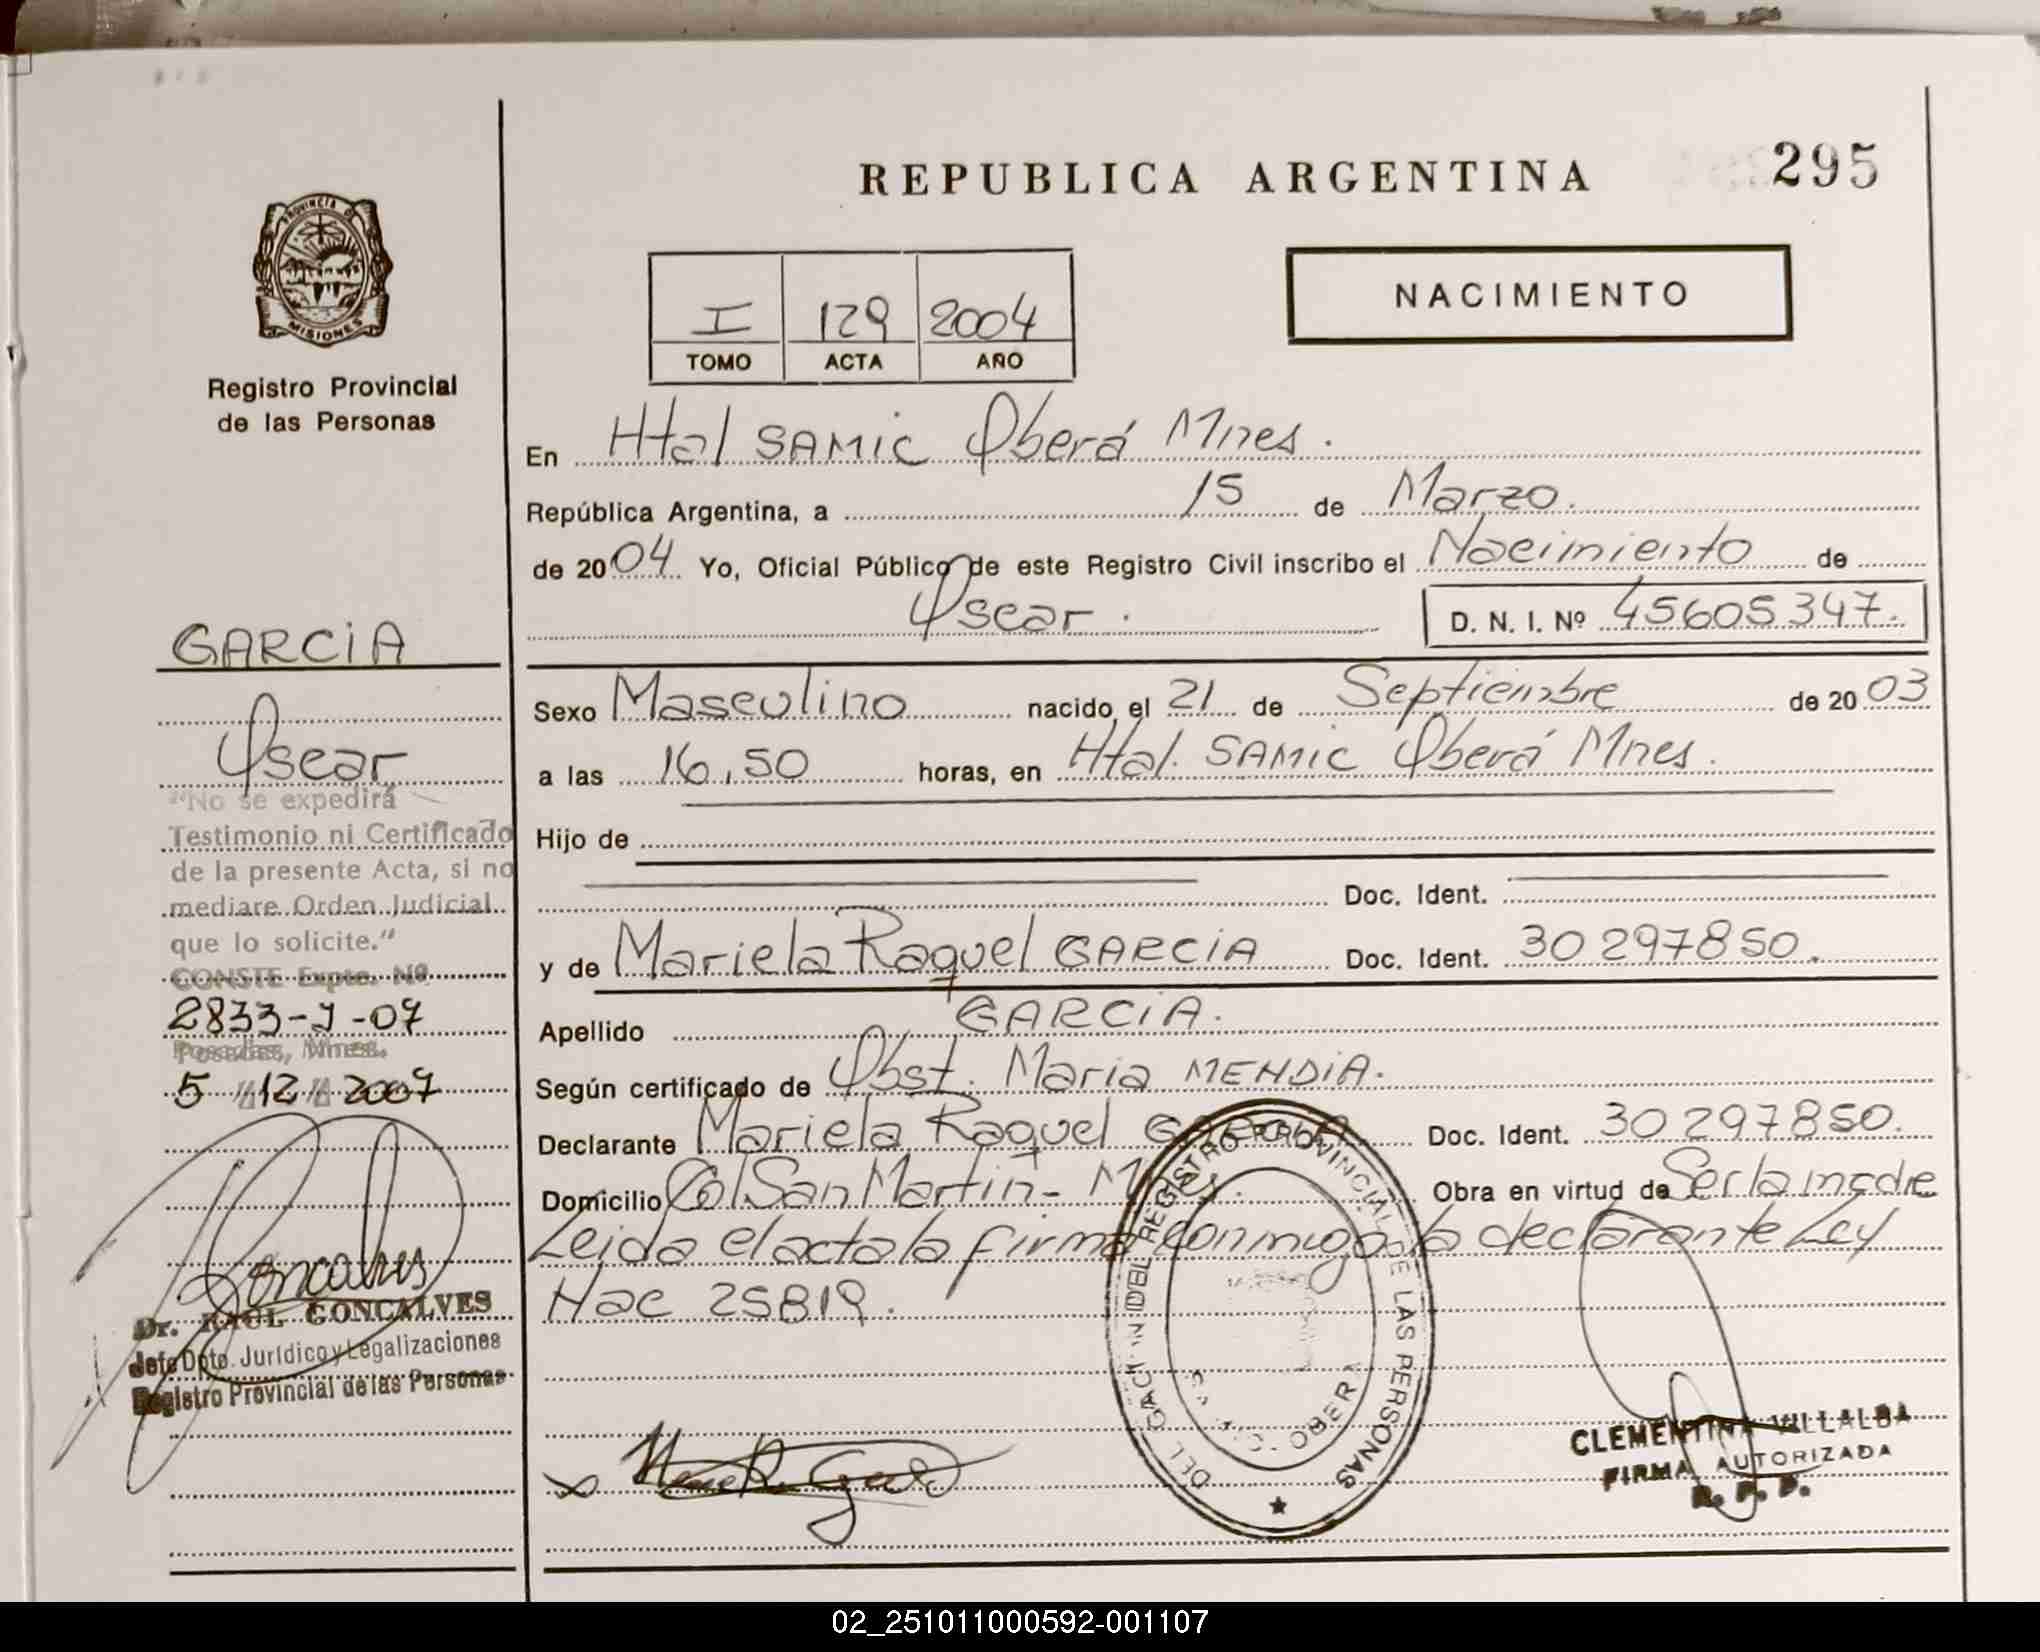 REPUBLICA ARGENTINA
295
PROVINCIA DE
MISIONES
Registro Provincial
de las Personas
NACIMIENTO
I 129 2004
TOMO ACTA AÑO
En Htal SAMIC Oberá Mnes.
República Argentina, a 15 de Marzo.
de 2004. Yo, Oficial Público de este Registro Civil inscribo el Nacimiento de
Oscar.
D. N. I. Nº 45605347.
GARCIA
Oscar
"No se expedirá
Testimonio ni Certificado
de la presente Acta, si no
mediare Orden Judicial
que lo solicite."
CONSTE Expte. Nº
2833-J-07
Posadas, Mnes.
5 // 12 // 2007
Goncalves
Dr. RAUL GONCALVES
Jefe Dpto. Jurídico y Legalizaciones
Registro Provincial de las Personas
Sexo Masculino nacido el 21 de Septiembre de 2003
a las 16,50 horas, en Htal. SAMIC Oberá Mnes.
Hijo de
Doc. Ident.
y de Mariela Raquel GARCIA Doc. Ident. 30297850.
Apellido GARCIA.
Según certificado de Obst. Maria MENDIA.
Declarante Mariela Raquel GARCIA Doc. Ident. 30297850.
Domicilio Col San Martin - Mnes. Obra en virtud de Ser la madre
Leida el acta la firma conmigo la declarante Ley
Nac 25819.
DEL REGISTRO PROVINCIAL DE LAS PERSONAS
OBERA
CLEMENTINA VILLALBA
FIRMA AUTORIZADA
R. P. P.
02_251011000592-001107